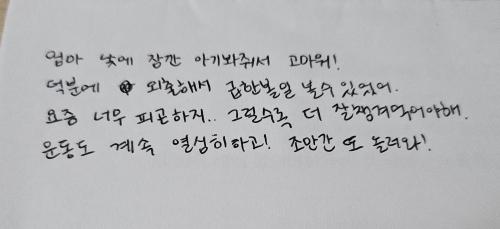 엄마 낮에 잠깐 아기봐줘서 고마워!
덕분에 외출해서 급한볼일 볼수 있었어.
요즘 너무 피곤하지.. 그럴수록 더 잘챙겨먹어야해.
운동도 계속 열심히하고! 조만간 또 놀러와!